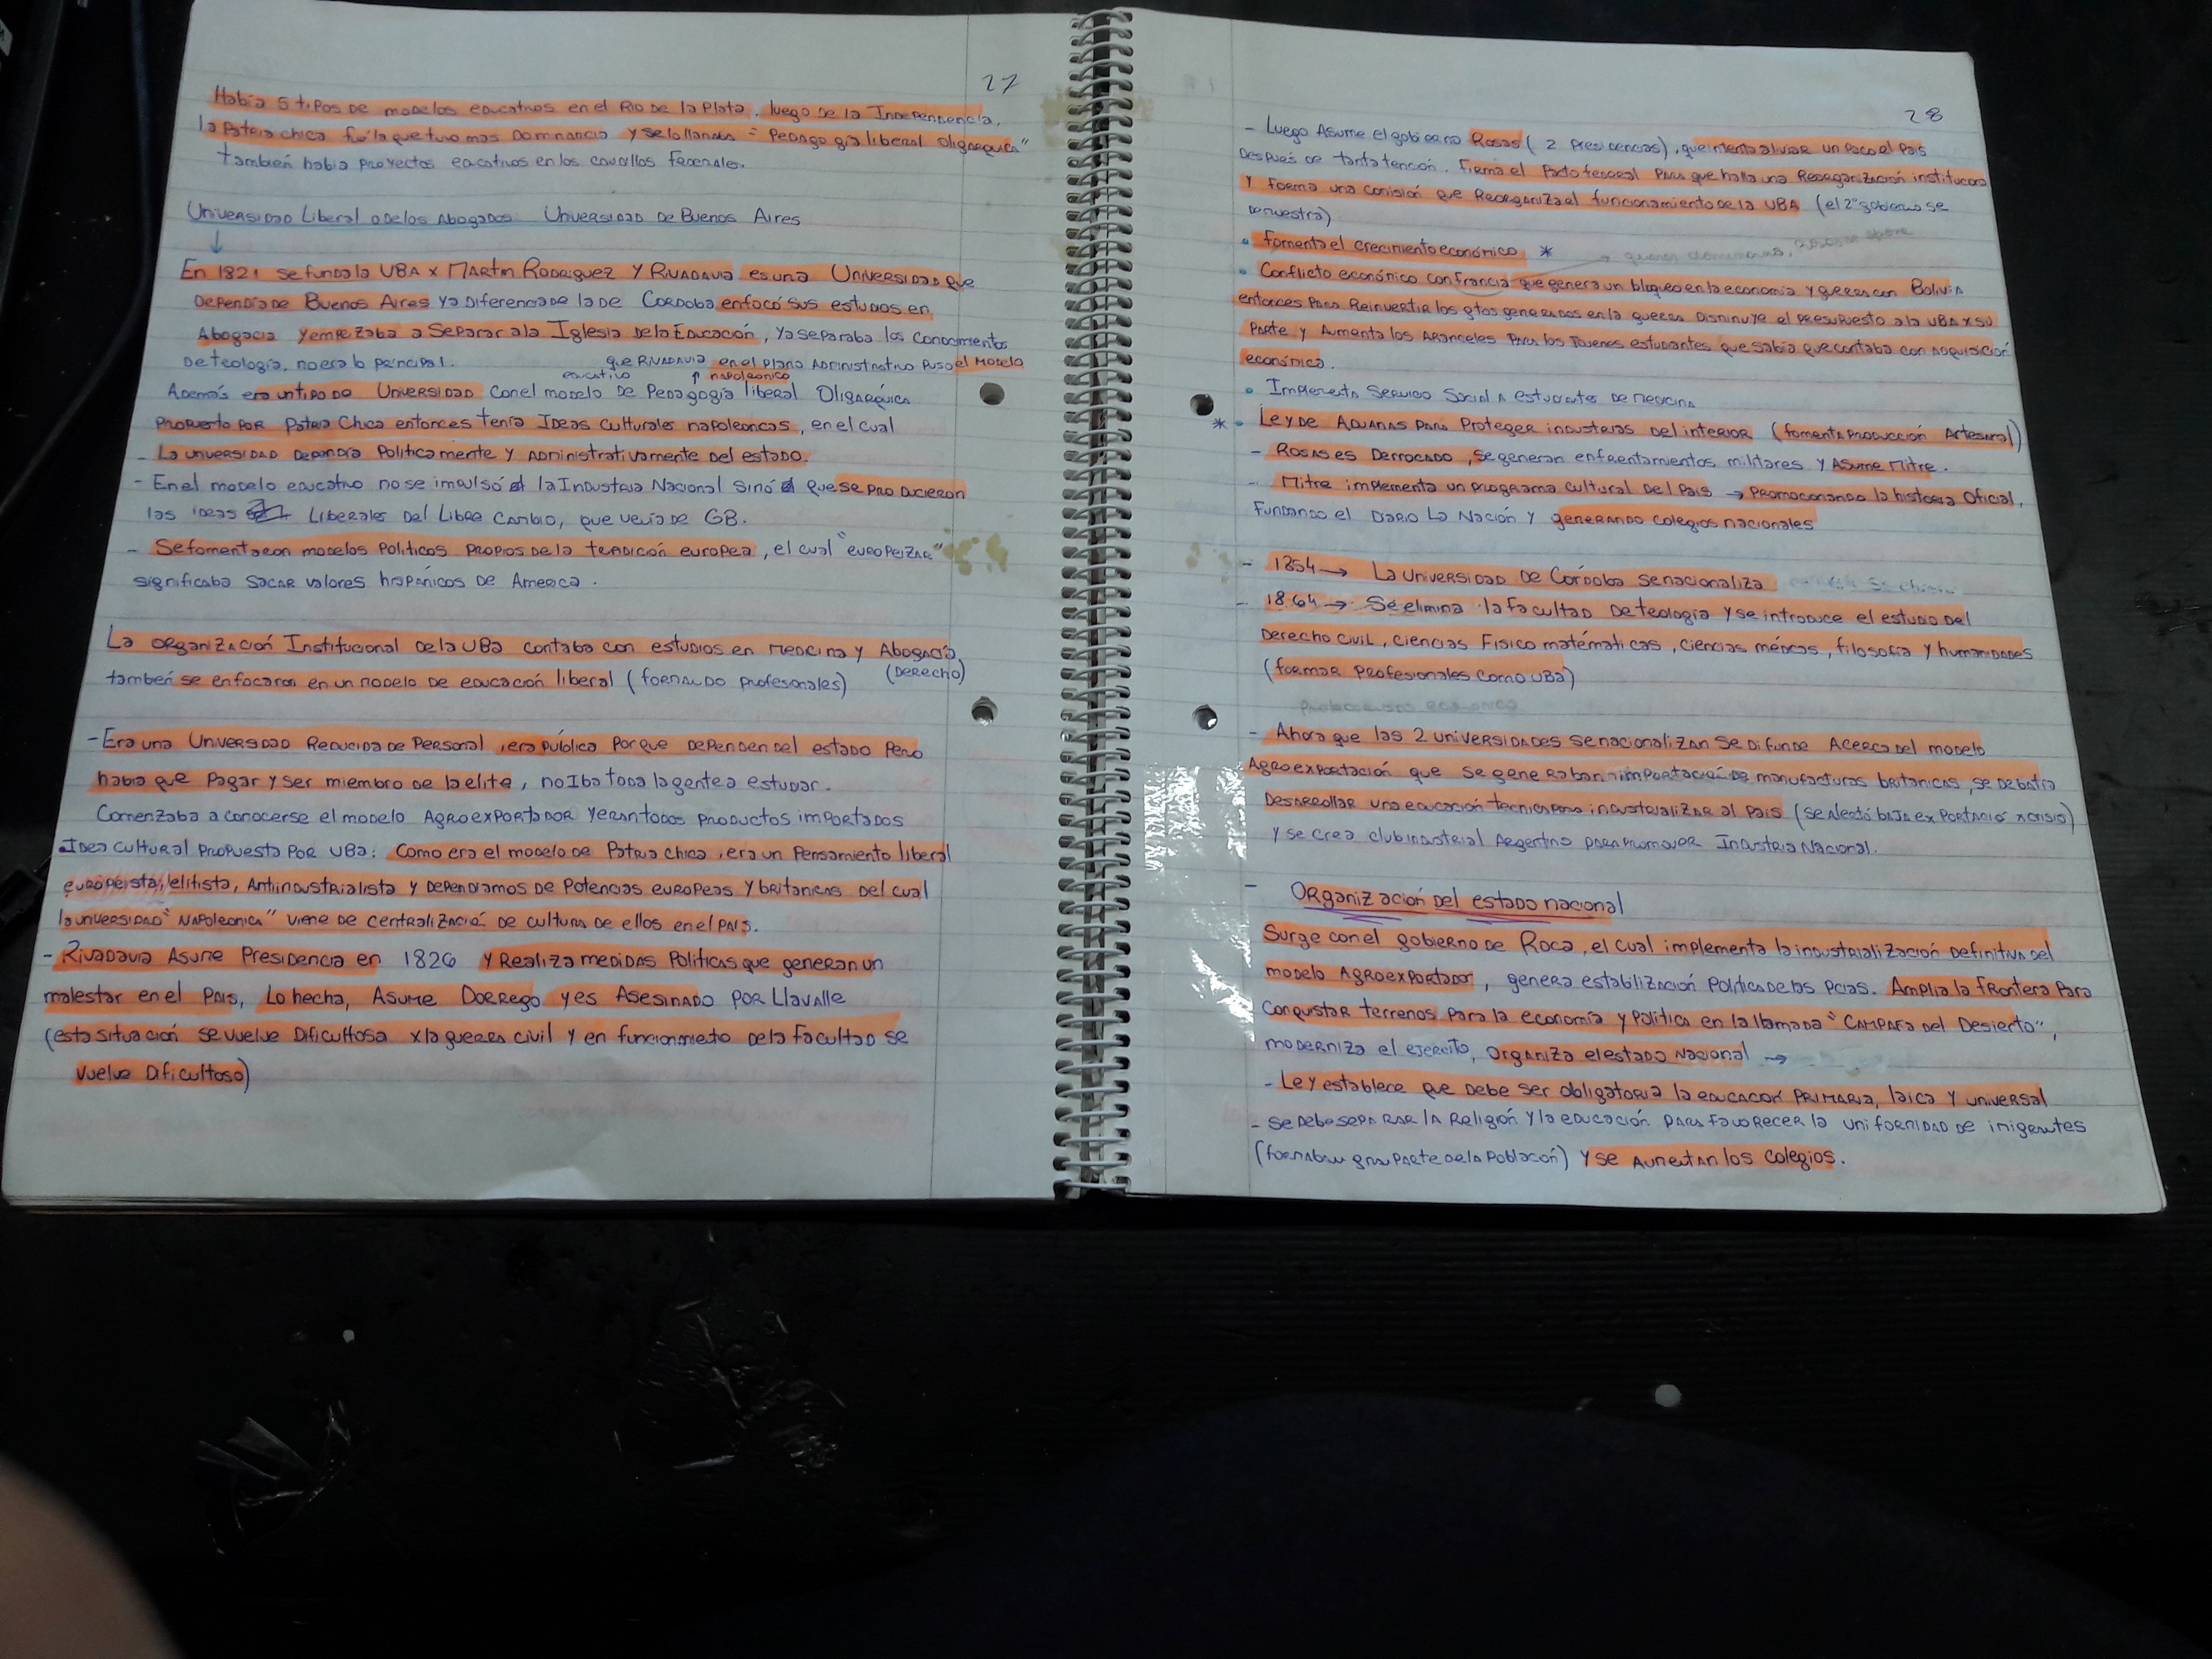 27
Había 5 tipos de modelos educativos en el Rio de la Plata. luego de la Independencia,
la Patria chica fué la que tuvo mas dominancia y se lo llamaba = "Pedagogía liberal oligarquica"
también habia proyectos eacativos en los caudillos Federales.
Universidad Liberal o de los Abogados: Universidad de Buenos Aires
↓
En 1821 se funda la UBA x Martin Rodriguez y Rivadavia es una Universidad que
dependía de Buenos Aires y a diferencia de la de Cordoba enfocó sus estudios en
Abogacia y empezaba a separar a la Iglesia de la Educación, ya separaba los conocimientos
de teología, no era lo principal. que Rivadavia en el plano Administrativo puso el modelo
educativo ↑ napoleonico
Además era un tipo de Universidad con el modelo de Pedagogía liberal Oligarquica
propuerto por Patria Chica entonces tenía Ideas culturales napoleonicas, en el cual
- La universidad dependía Politicamente y Administrativamente del estado.
- En el modelo educativo no se impulsó la Industria Nacional sinó que se producieron
las ideas Liberales del Libre cambio, que venía de GB.
- Se fomentaron modelos politicos propios de la tradición europea, el cual "europeizar"
significaba sacar valores hispánicos de America.
La organización Institucional de la UBA contaba con estudios en medicina y Abogacía,
(Derecho)
también se enfocaron en un modelo de educación liberal (formando profesionales)
- Era una Universidad Reducida de Personal, era pública porque dependen del estado pero
habia que pagar y ser miembro de la elite, no iba toda la gente a estudiar.
Comenzaba a conocerse el modelo Agroexportador y eran todos productos importados
Idea cultural propuesta por UBA: Como era el modelo de Patria chica, era un pensamiento liberal
europeista, elitista, Antiindustrialista y dependiamos de potencias europeas y britanicas del cual
la universidad "Napoleonica" viene de centralización de cultura de ellos en el pais.
- Rivadavia Asume Presidencia en 1826 y Realiza medidas Politicas que generan un
malestar en el país, Lo hecha, Asume Dorrego y es Asesinado por Llavalle
(esta situación se vuelve dificultosa x la guerra civil y en funcionamiento de la facultad se
vuelve dificultoso)
28
- Luego Asume el gobierno Rosas (2 presidencias), que intenta aliviar un poco el país
después de tanta tención. Firma el Pacto federal para que halla una Reorganización institucional
y forma una comisión que Reorganiza el funcionamiento de la UBA (el 2° gobierno se
demuestra)
• fomenta el crecimiento económico *
• Conflicto económico con francia que genera un bloqueo en la economía y guerra con Bolivia
entonces para Reinvertir los gtos generados en la guerra disminuye el presupuesto a la UBA x su
parte y Aumenta los Aranceles para los Jovenes estudiantes que sabia que contaba con adquisición
económica.
• Implementa Servicio Social a estudiantes de medicina
* • Ley de Aduanas para Proteger industrias del interior (fomenta Producción Artesanal)
- Rosas es Derrocado, se generan enfrentamientos militares y Asume Mitre.
- Mitre implementa un programa cultural del País → promocionando la historia Oficial,
Fundando el Diario La Nación y generando colegios nacionales
- 1854 → La Universidad de Córdoba se nacionaliza
- 1864 → Se elimina la facultad de teología y se introduce el estudio del
Derecho civil, ciencias Fisico matématicas, ciencias médicas, filosofía y humanidades
(formar profesionales como UBA)
- Ahora que las 2 universidades se nacionalizan se difunde Acerca del modelo
Agroexportación que se generaban importación de manufacturas britanicas, se debatía
desarrollar una educación tecnica para industrializar al país (se Alentó baja exportació x crisis)
y se crea club industrial Argentino para promover Industria Nacional.
- Organización del estado nacional
Surge con el gobierno de Roca, el cual implementa la industrialización definitiva del
modelo Agroexportador, genera establización politica de las Pcias. Amplia la frontera para
conquistar terrenos para la economía y politica en la llamada "Campaña del Desierto",
moderniza el ejercito, organiza el estado Nacional →
- Ley establece que debe ser obligatoria la educación primaria, laica y universal
- se debe separar la Religión y la educación para favorecer la uniformidad de inmigrantes
(formaban gran parte de la población) y se aumentan los colegios.